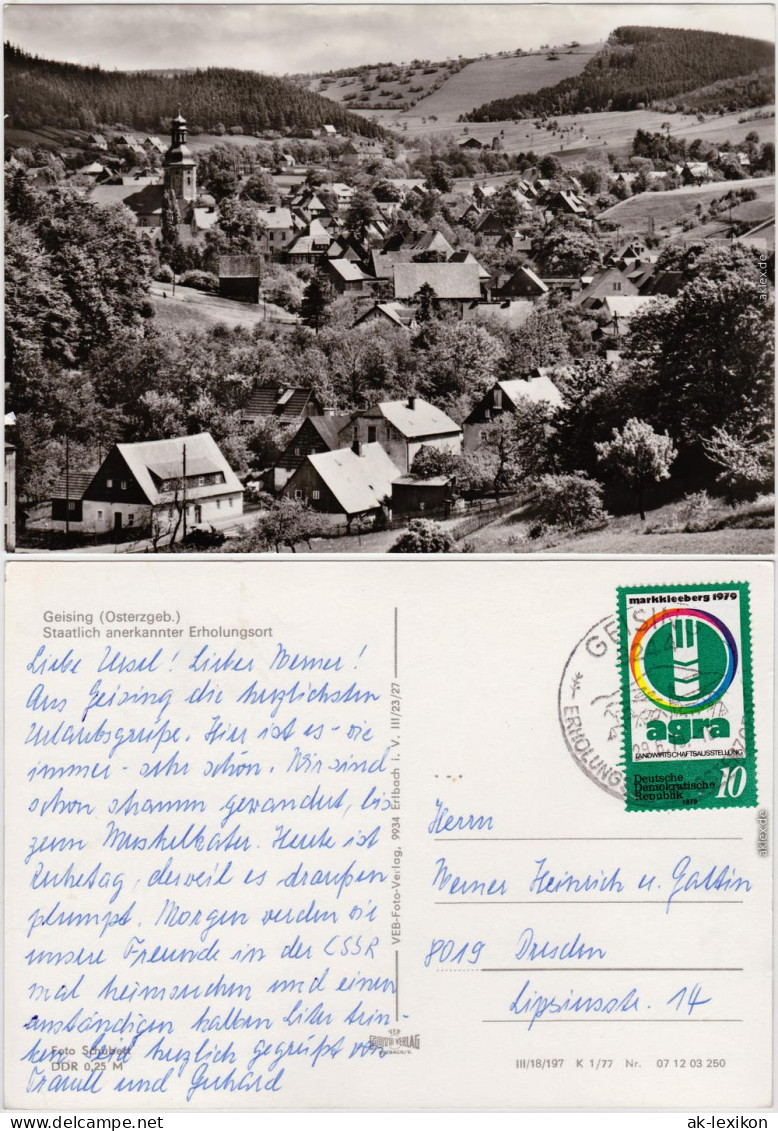 Geising (Osterzgeb.)
Staatlich anerkannter Erholungsort
Liebe Ursel! Lieber Werner!
Aus Geising die herzlichsten
Urlaubsgrüße. Hier ist es - wie
immer - sehr schön. Wir sind
schon stramm gewandert, bis
zum Muskelkater. Heute ist
Ruhetag, derweil es draußen
plumpt. Morgen werden wir
unsere Freunde in der CSSR
mal heimsuchen und einen
anständigen halben Liter trin-
ken. Seid herzlich gegrüßt von
Traudl und Gerhard
Foto Schubert
DDR 0,25 M
VEB-Foto-Verlag, 9934 Erlbach i. V. III/23/27
FOTO VERLAG
GEISING
ERHOLUNGS
markkleeberg 1979
agra
LANDWIRTSCHAFTSAUSSTELLUNG
Deutsche
Demokratische
Republik 10
1979
Herrn
Werner Heinrich u. Gattin
8019 Dresden
Lipsiusstr. 14
III/18/197 K 1/77 Nr. 07 12 03 250
aklex.de
aklex.de
www.ak-ansichtskarten.de
ak-lexikon.com